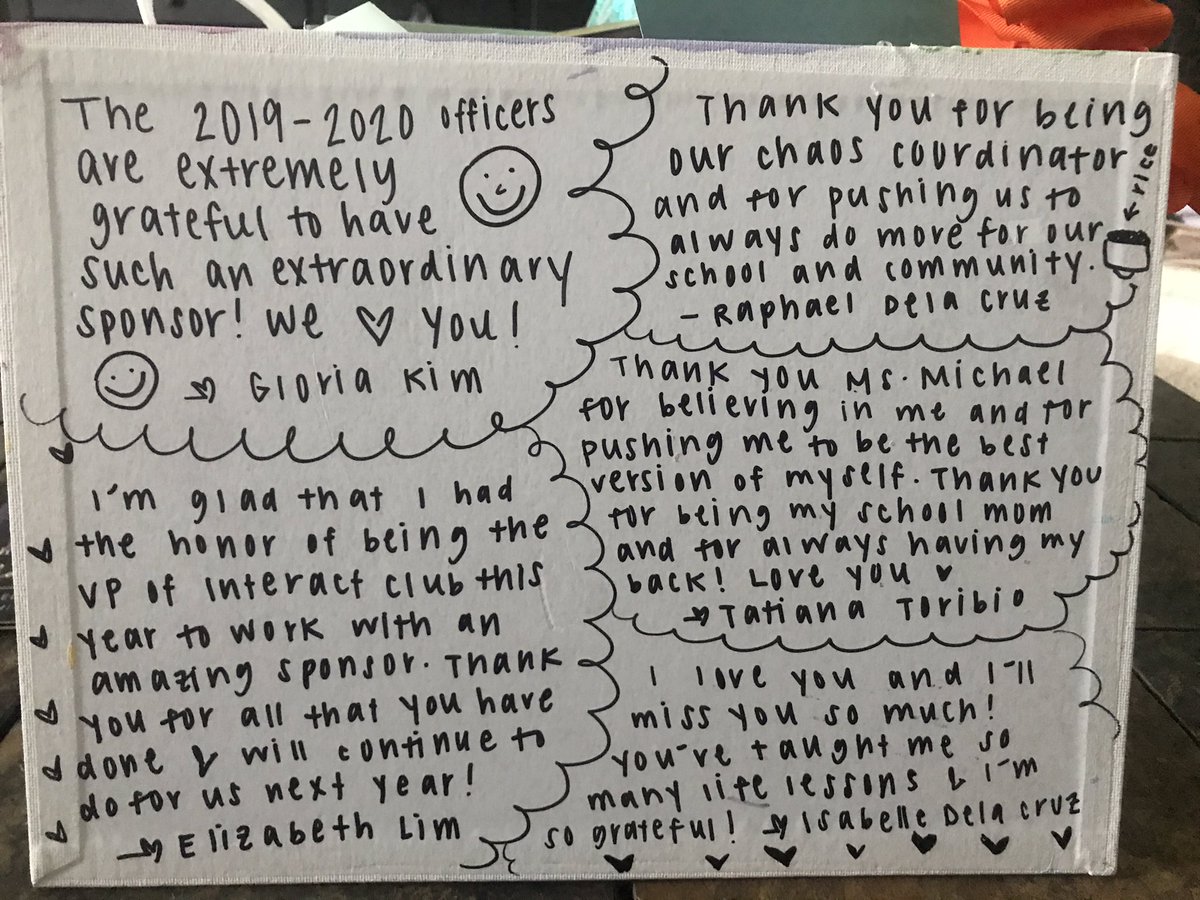 The 2019-2020 officers
are extremely
grateful to have
such an extraordinary
sponsor! We ♡ you!
Gloria Kim
Thank you for being
our chaos coordinator
and for pushing us to
always do more for our
school and community.
- Raphael Dela Cruz
rice
Thank you Ms. Michael
for believing in me and for
pushing me to be the best
version of myself. Thank you
for being my school mom
and for always having my
back! Love you ♥
→ Tatiana Toribio
I'm glad that I had
the honor of being the
VP of Interact club this
year to work with an
amazing sponsor. Thank
you for all that you have
done & will continue to
do for us next year!
→ Elizabeth Lim
I love you and I'll
miss you so much!
you've taught me so
many life lessons & I'm
so grateful! → Isabelle Dela Cruz